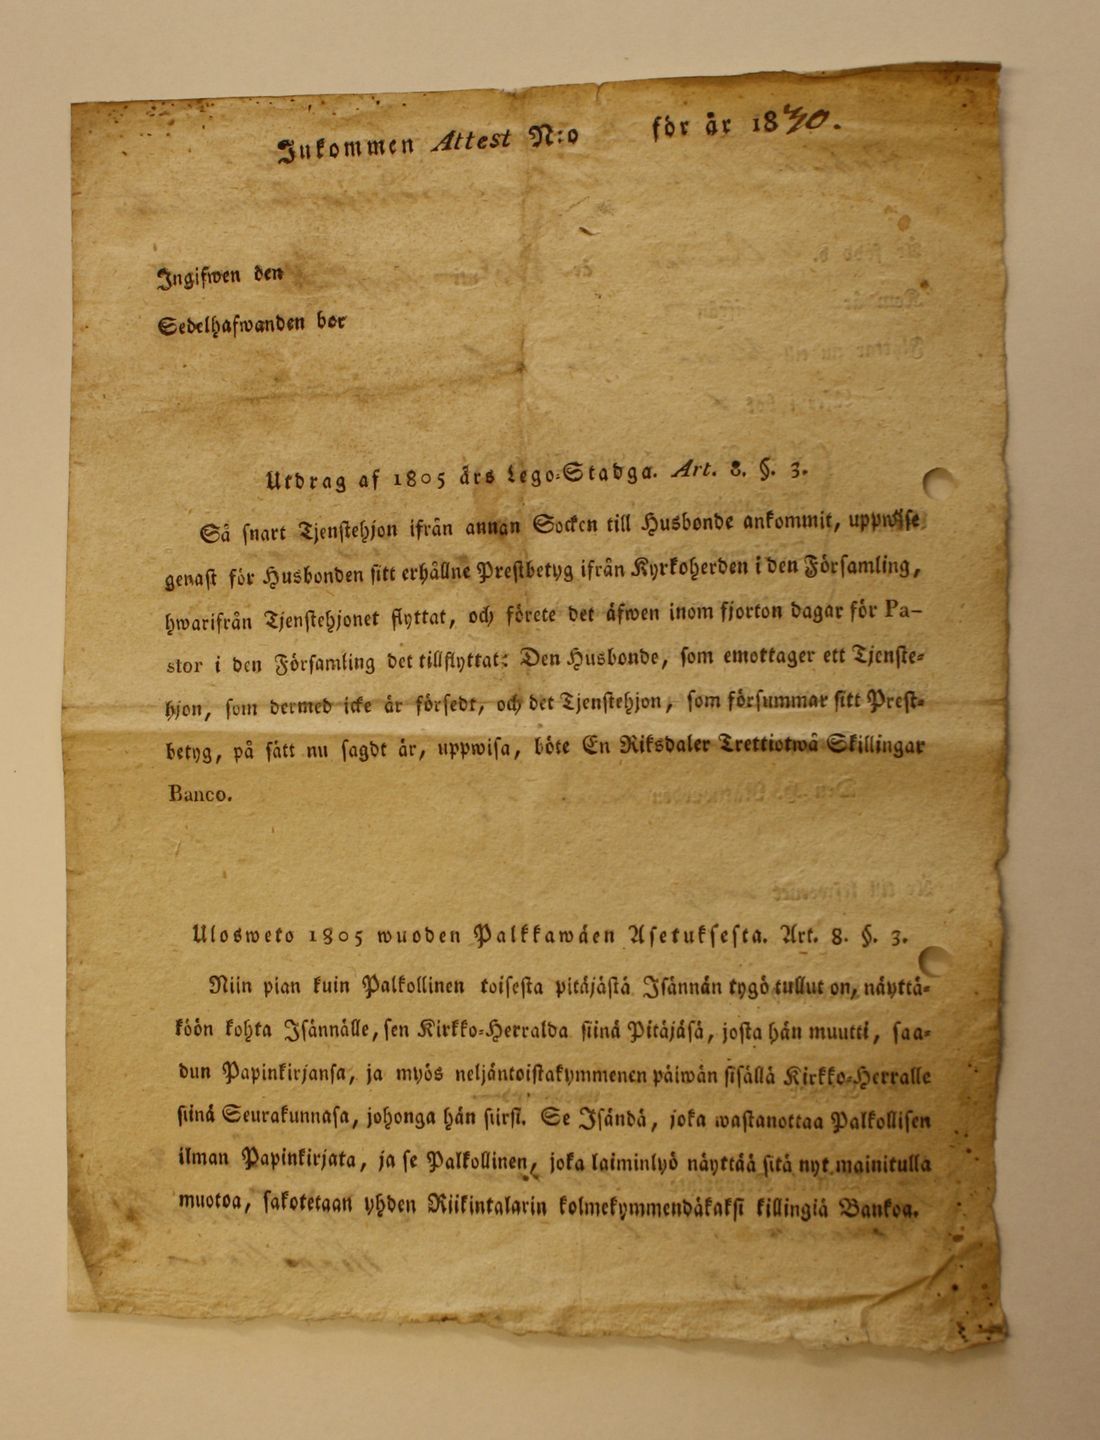 Inkommen Attest N:o för år 1830.
Ingifwen den
Sedelhafwanden bor
Utdrag af 1805 års Lego-Stadga. Art. 8. §. 3.
Så snart Tjenstehjon ifrån annan Socken till Husbonde ankommit, uppwise
genast för Husbonden sitt erhållne Prestbetyg ifrån Kyrkoherden i den Församling,
hwarifrån Tjenstehjonet flyttat, och förete det äfwen inom fjorton dagar för Pa-
stor i den Församling det tillflyttat: Den Husbonde, som emottager ett Tjenste-
hjon, som dermed icke är försedt, och det Tjenstehjon, som försummar sitt Prest-
betyg, på sätt nu sagdt är, uppwisa, böte En Riksdaler Trettiotwå Skillingar
Banco.
Ulosweto 1805 wuoden Palkkawäen Asetuksesta. Art. 8. §. 3.
Niin pian kuin Palkollinen toisesta pitäjästä Isännän tygö tullut on, näyttä-
köön kohta Isännälle, sen Kirkko-Herralda siinä Pitäjäsä, josta hän muutti, saa-
dun Papinkirjansa, ja myös neljäntoistakymmenen päiwän sisällä Kirkko-Herralle
siinä Seurakunnasa, johonga hän siirsi. Se Isändä, joka wastanottaa Palkollisen
ilman Papinkirjata, ja se Palkollinen, joka laiminlyö näyttää sitä nyt mainitulla
muotoa, sakotetaan yhden Riikintalarin kolmekymmendäkaksi killingiä Bankoa.